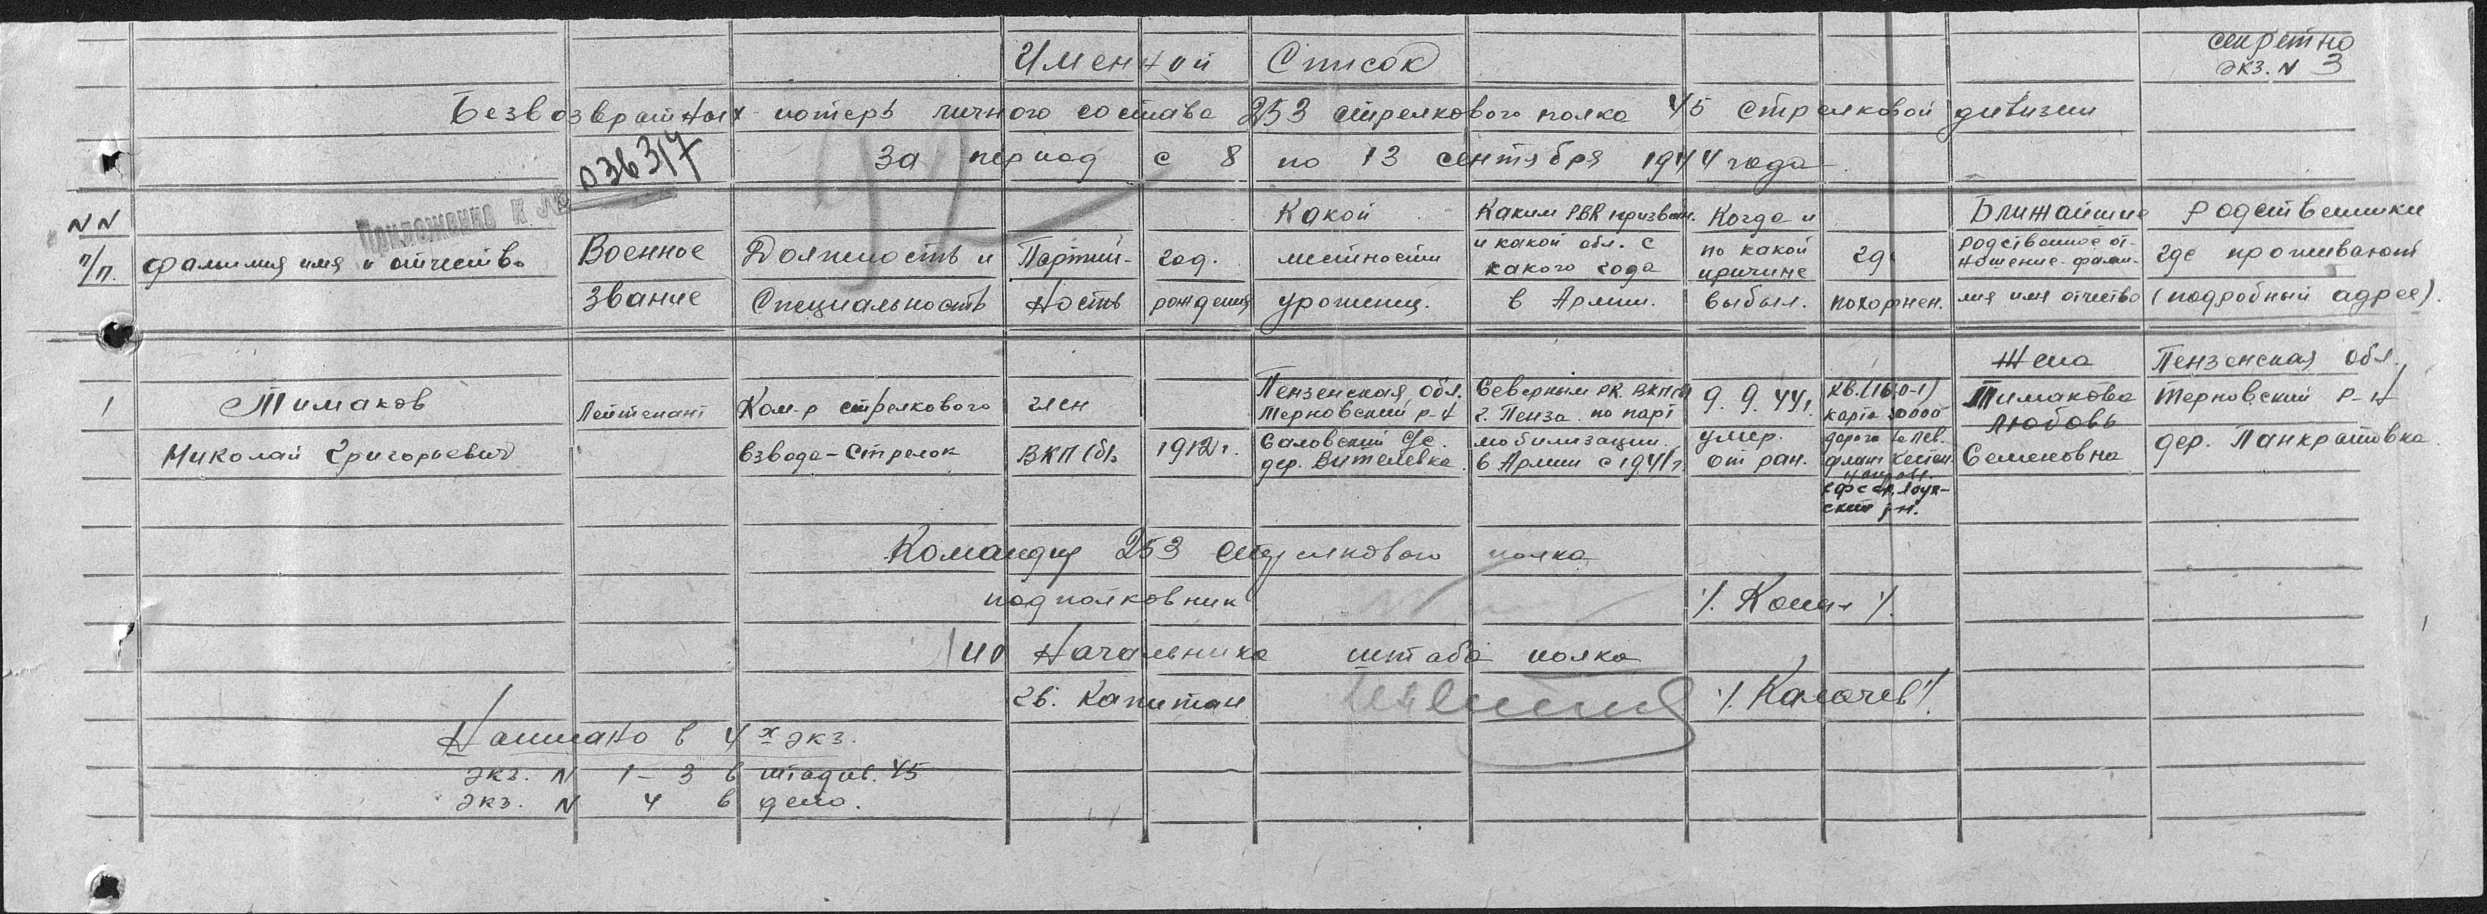 секретно
экз. N 3
Именной Список
Безвозвратных потерь личного состава 253 стрелкового полка 45 стрелковой дивизии
за период с 8 по 13 сентября 1944 года
Приложение к №
036317
92
NN п/п.
фамилия имя и отчество
Военное звание
Должность и специальность
Партий-ность
год. рождения
Какой местности урожениц.
Каким РВК призван. и какой обл. с какого года в Армии.
Когда и по какой причине выбыл.
где похорнен.
Ближайшие родственники
родственное от-ношение фами-лия имя отчество
где проживают (подробный адрес).
1
Тимаков Николай Григорьевич
Лейтенант
Ком-р стрелкового взвода - стрелок
член ВКП(б).
1912 г.
Пензенская обл. Терновский р-н Саловский с/с. дер. Вителевка.
Северным РК ВКП(б) г. Пенза по парт мобилизации. в Армии с 1941 г.
9. 9. 44 г. умер. от ран.
кв. (16,0-1) карта 50000 дорога
ский р-н.
Жена Тимакова Любовь Семеновна
Пензенская обл. Терновский р-н дер. Панкратовка.
Командир 253 стрелкового полка
подполковник
ио Начальника штаба полка
гв. Капитан /. Калачев /.
Написано в 4х экз.
экз. N 1-3 в штадив. 45
экз. N 4 в дело.